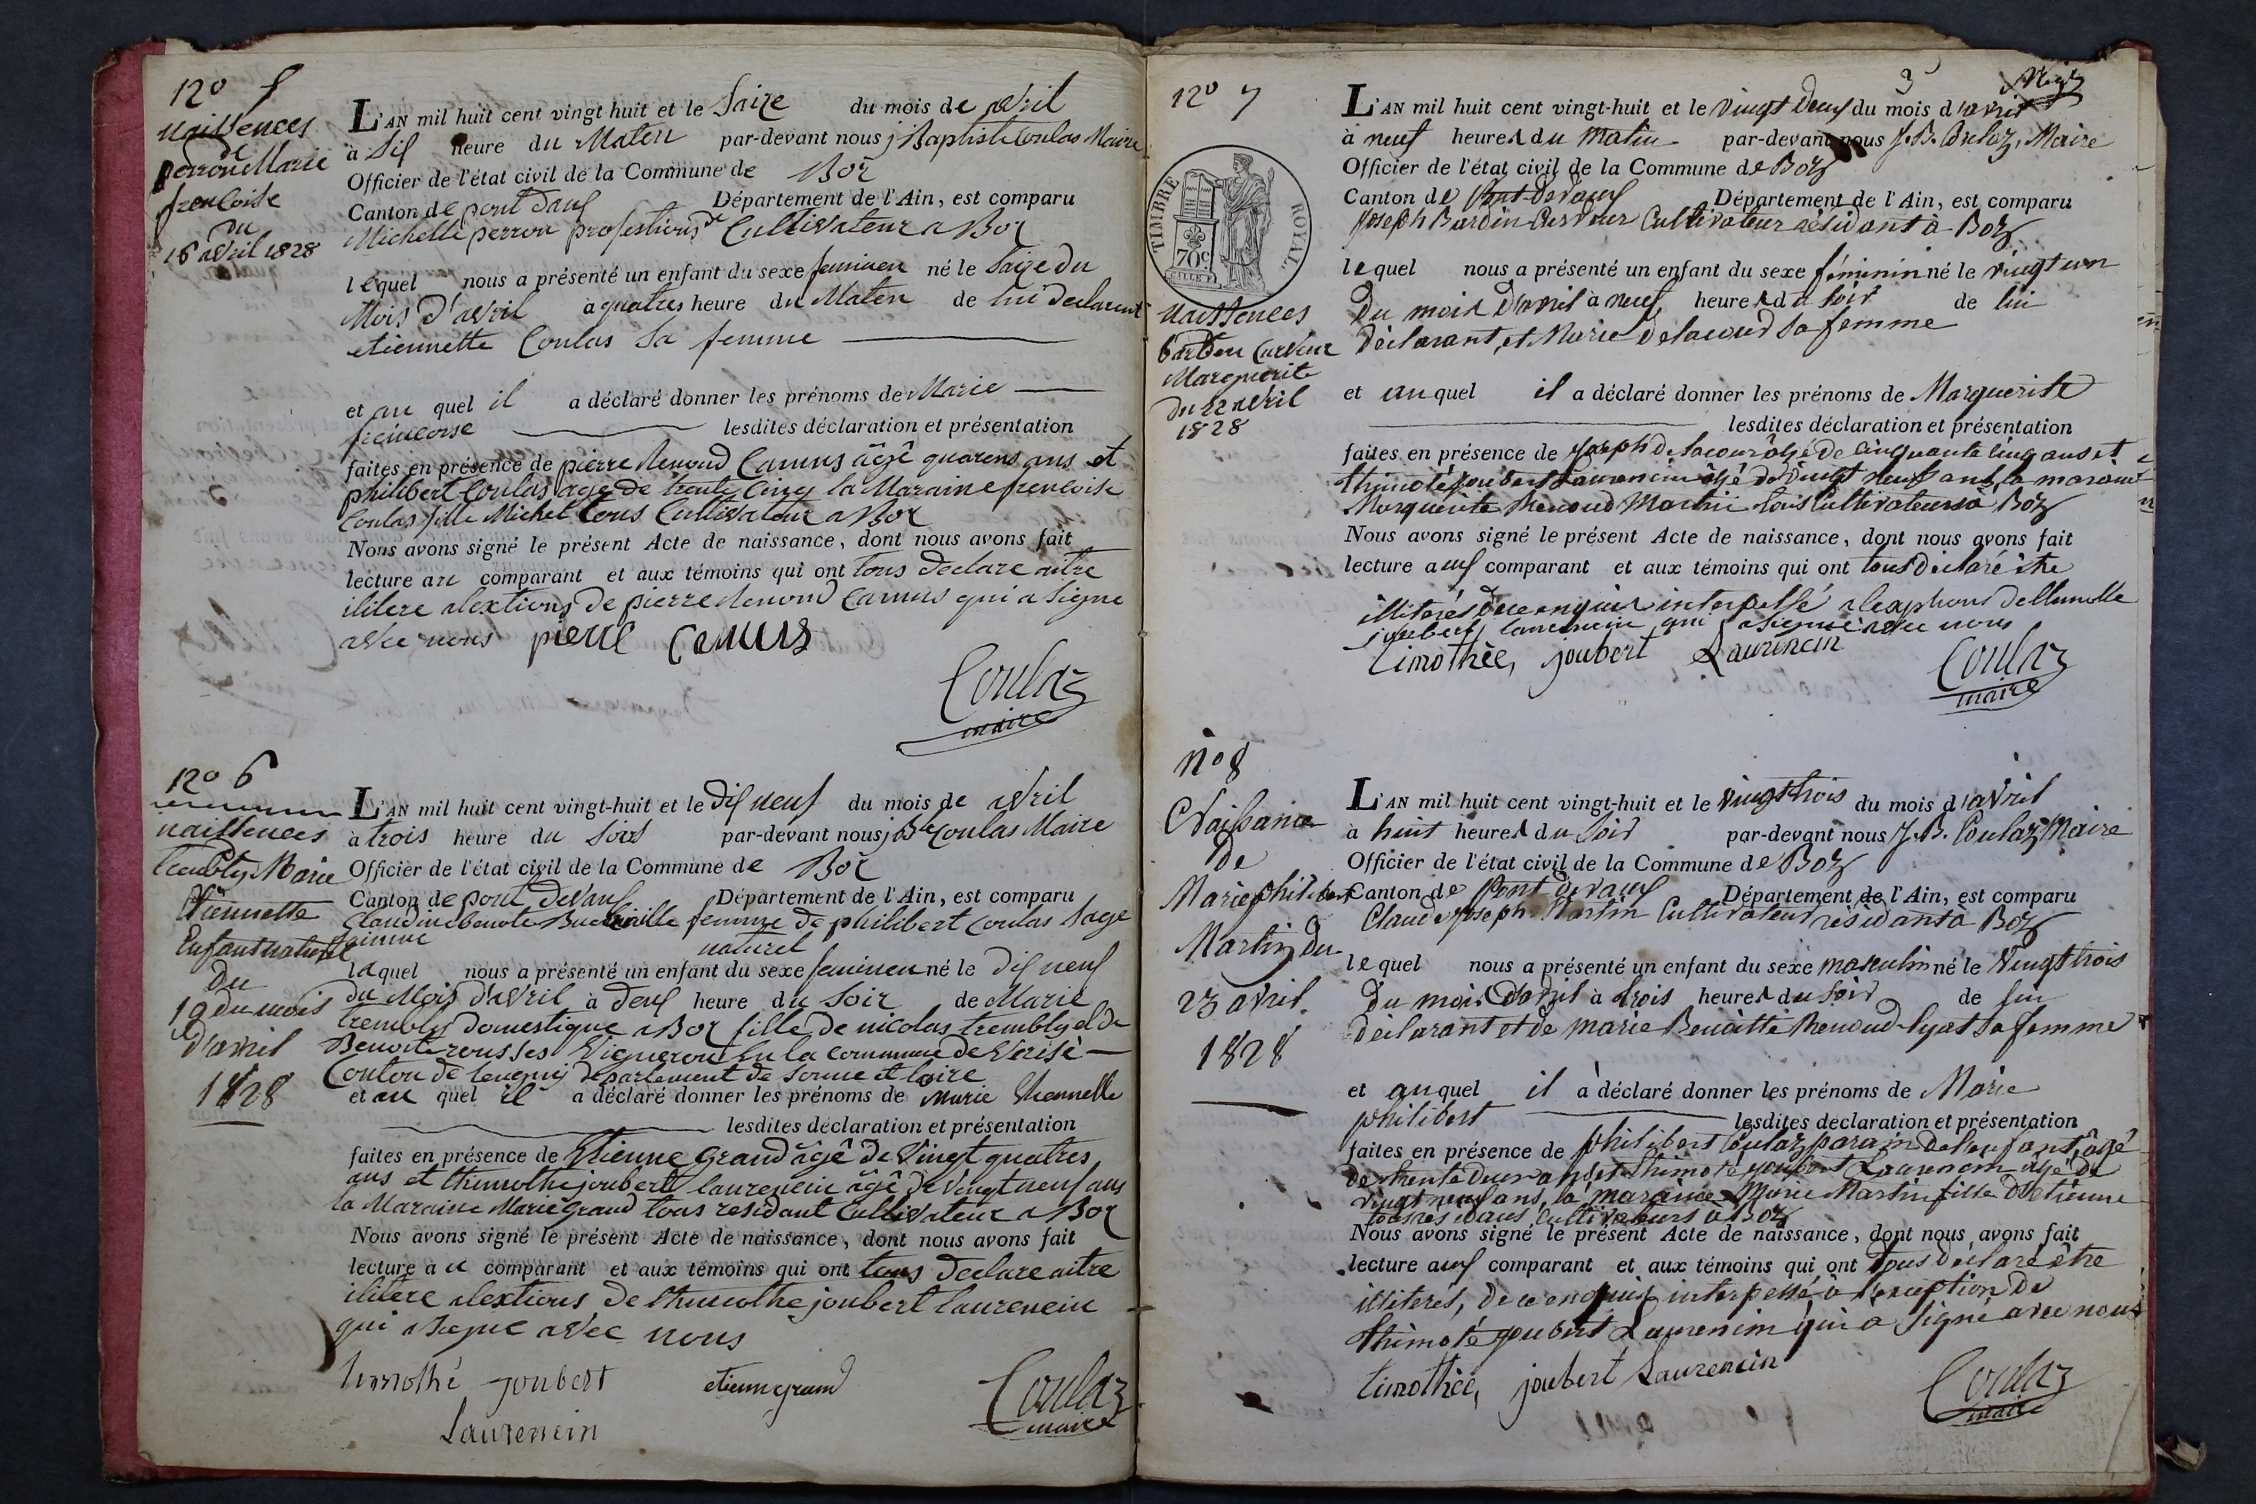 n° 5
naissences
de
perron Marie
frencoise
du
16 avril 1828
L'AN mil huit cent vingt huit et le Saize du mois de avril
à Six heure du Maten par-devant nous j Baptiste Coulas Maire
Officier de l'état civil de la Commune de Boz
Canton de pont Daux Département de l'Ain, est comparu
Michelle perron profestions de Cultivateur a Boz
lequel nous a présenté un enfant du sexe feminen né le Saize du
Mois d'avril à quatres heure du Maten de lui declarent
etiennette Coulas Sa femme
et au quel il a déclaré donner les prénoms de Marie
freincoise lesdites déclaration et présentation
faites en présence de pierre Renoud Camus âgê quarens ans et
philibert Coulas age de trente Cinq la Maraine frencoise
Coulas fille Michel tous Cultivateur a Boz
Nous avons signé le présent Acte de naissance, dont nous avons fait
lecture au comparant et aux témoins qui ont tous declare aitre
ilitere alextions de pierre Renoud Camus qui a Signe
avec nous pierre Camus
Coulaz
maire
n° 6
naissences
trembly Marie
Etiennette
Enfant naturel
du
19 du mois
d'avril
1828
L'AN mil huit cent vingt-huit et le dix neuf du mois de avril
à trois heure du Soir par-devant nous j Bte Coulas Maire
Officier de l'état civil de la Commune de Boz
Canton de pont Devaux Département de l'Ain, est comparu
Claudine benoite femme de philibert Coulas Sage
famme naturel
laquel nous a présenté un enfant du sexe feminen né le dix neuf
du Mois d'avril à deux heure du Soir de Marie
trembly Domestique a Boz fille de nicolas trembly et de
Benoite rousses Vigneron en la commune de Verisè
Conton de departement de Sonne et loire
et au quel il a déclaré donner les prénoms de Marie
lesdites déclaration et présentation
faites en présence de Etienne Grand âgê de Vingt quatres
ans et thimothe joubert laurencin âgê de Vingt neuf ans
la Maraine Marie Grand tous residant Cultivateur a Boz
Nous avons signé le présent Acte de naissance, dont nous avons fait
lecture à u comparant et aux témoins qui ont tous declare aitre
ilitere alextions de thimothe joubert laurencin
qui a Signe avec nous
timothé joubert etienne grand Coulaz
Laurencin maire
3
n° 7
TIMBRE ROYAL
70c
naissences
bardin Curveur
Marguerite
du 22 avril
1828
L'AN mil huit cent vingt-huit et le vingt deux du mois d'avril
à neuf heures du matin par-devant nous J. B. Coulaz, Maire
Officier de l'état civil de la Commune de Boz
Canton de Pont-Devaux Département de l'Ain, est comparu
Joseph Bardin-Curveur Cultivateur résidant à Boz
lequel nous a présenté un enfant du sexe féminin né le vingt un
Du mois D'avril à neuf heures du soir de lui
Déclarant, et Marie Delacour sa femme
et au quel il a déclaré donner les prénoms de Marguerite
lesdites déclaration et présentation
faites en présence de Joseph Delacour âgé de Cinquante Cinq ans et
thimoté Joubert Laurencin âgé de vingt neuf ans, la maraine
Marguerite Renoud Martin tous Cultivateurs à Boz
Nous avons signé le présent Acte de naissance, dont nous avons fait
lecture aux comparant et aux témoins qui ont tous déclaré être
illiterés de ce enquis interpellé
joubert laurencin qui a signé avec nous
timothèe, joubert Laurencin Coulaz
maire
n° 8
Naissance
de
Marie philibert
Martin du
23 avril
1828
L'AN mil huit cent vingt-huit et le vingt trois du mois d'avril
à huit heures du Soir par-devant nous J. B. Coulaz, Maire
Officier de l'état civil de la Commune de Boz
Canton de Pont devaux Département de l'Ain, est comparu
Claude Joseph Martin Cultivateur résidant à Boz
lequel nous a présenté un enfant du sexe masculin né le Vingt trois
Du mois D'avril à trois heures du soir de lui
déclarant et de marie Benoitte Renoud-lyat sa femme
et au quel il à déclaré donner les prénoms de Marie
philibert lesdites déclaration et présentation
faites en présence de philibert Coulaz parain de l'enfant, âgé
de trente deux ans et thimoté joubert Laurencin âgé de
vingt neuf ans, la maraine Marie Martin fille D'etienne
tous résidans Cultivateurs à Boz
Nous avons signé le présent Acte de naissance, dont nous avons fait
lecture aux comparant et aux témoins qui ont tous déclaré être
illiterés, de ce enquis interpellé à l'exception de
thimoté joubert Laurencin qui à signé avec nous
timothèe, joubert Laurencin Coulaz
maire